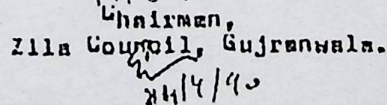 Chairman,
Zilla Council, Gujranwala.
24/4/90